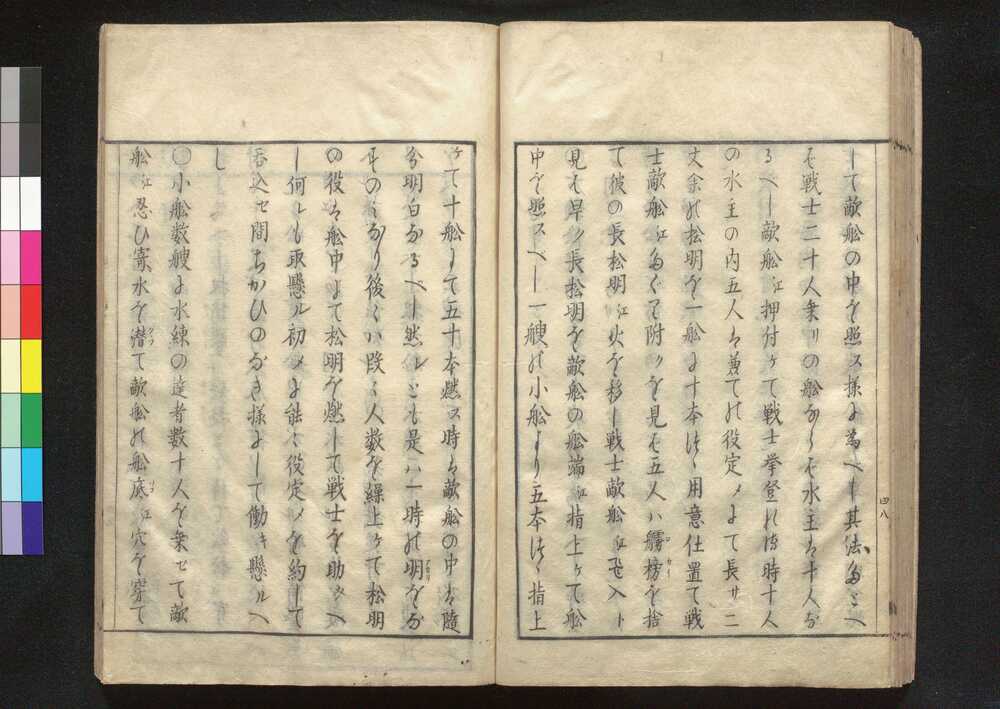 して敵船の中を照ス様に為べし其法たとへ
ば戦士二十人乗リの船ならば水主は十人な
るべし敵船江押付ケて戦士挙登れは時十人
の水主の内五人は兼ての役定メにて長サ二
丈余の松明を一船に十本つゝ用意仕置て戦
士敵船江たぐり附クを見ば五人ハ艪楫を捨
て彼の長松明江火を移し戦士敵船江飛入ト
見ば早ク長松明を敵船の船端江指上ケて船
中を照スべし一艘の小船より五本つゝ指上
ケて十船にて五十本燃ス時は敵船の中は随
分明白なるべし然レども是ハ一時の明をな
すのみなり後々ハ段々人数を繰上ケて松明
の役は船中にて松明を燃して戦士を助クべ
し何レも取懸ル初メに能々役定メを約して
呑込セ間ちかひのなき様にして働キ懸ルべ
し
○小船数艘に水練の達者数十人を乗せて敵
船江忍ひ寄水を潜て敵船の船底江穴を穿て
四八